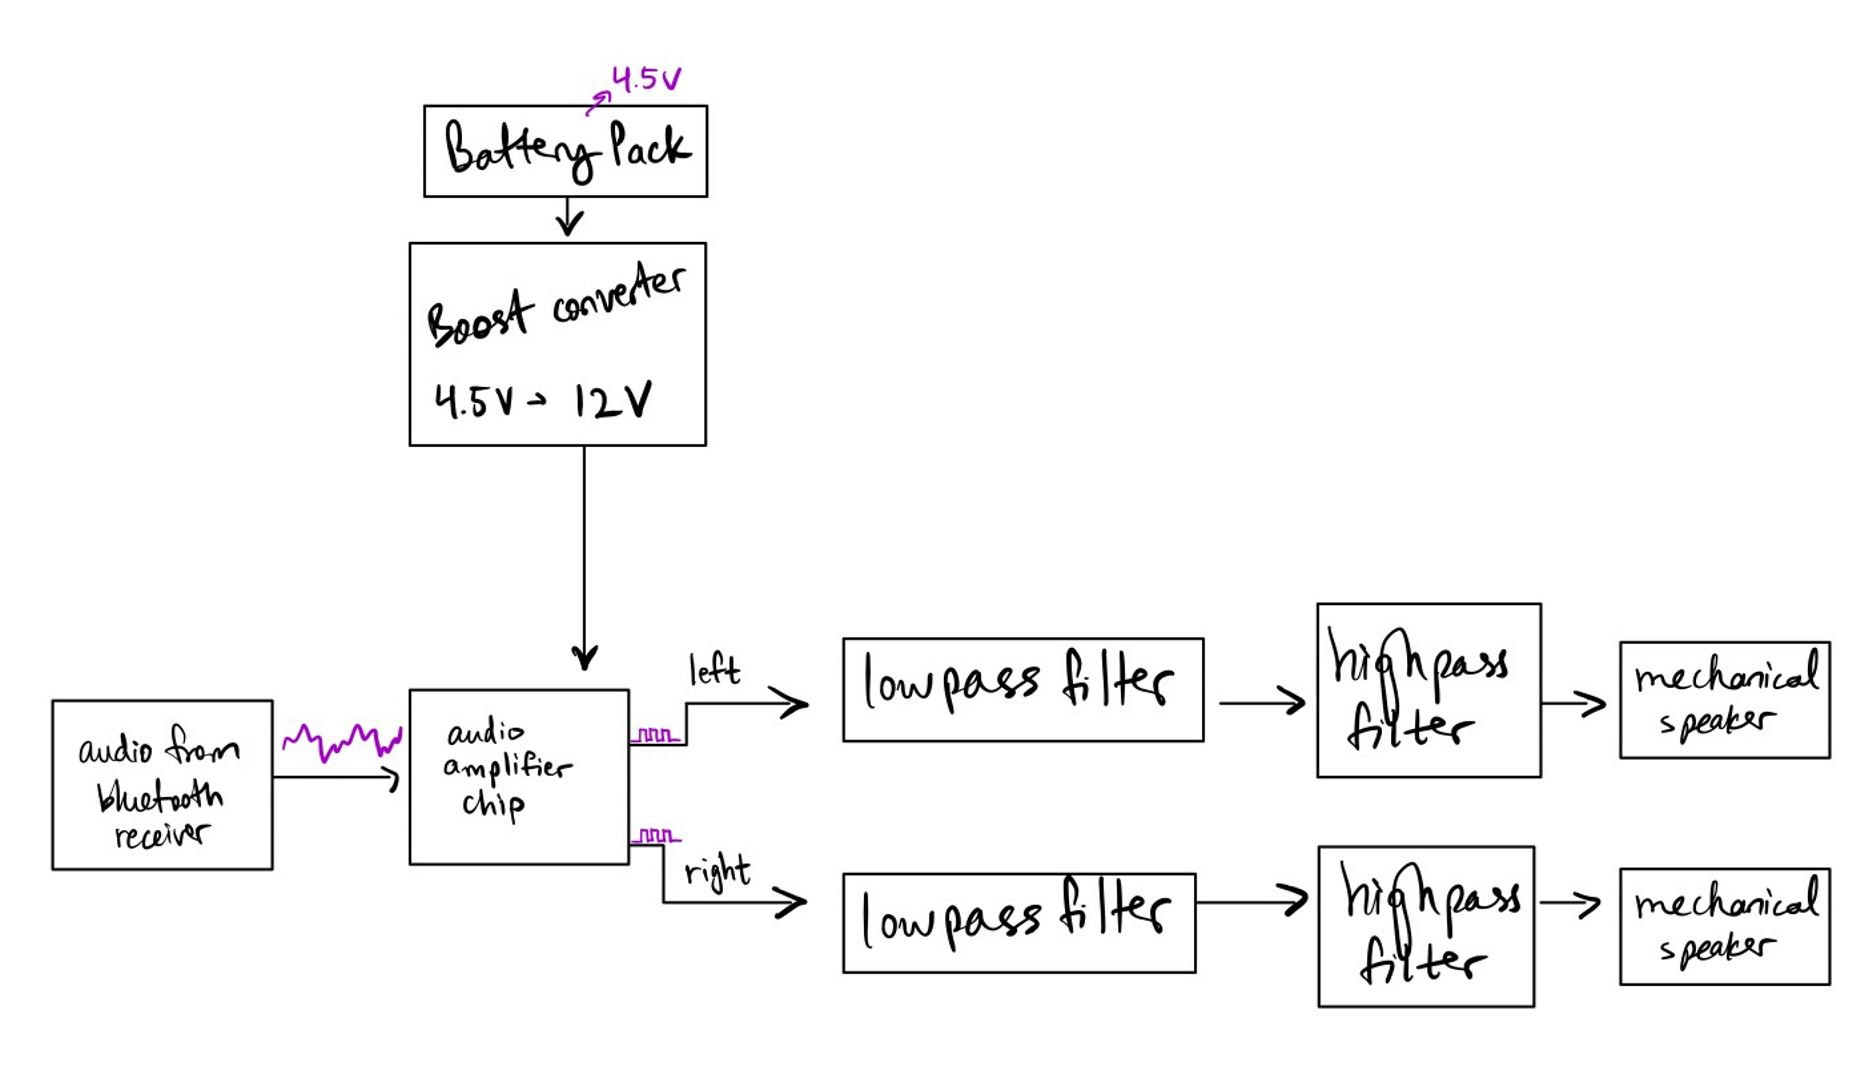 4.5V
Battery Pack
Boost converter
4.5V → 12V
audio from
bluetooth
receiver
audio
amplifier
chip
left
lowpass filter
highpass
filter
mechanical
speaker
right
lowpass filter
highpass
filter
mechanical
speaker